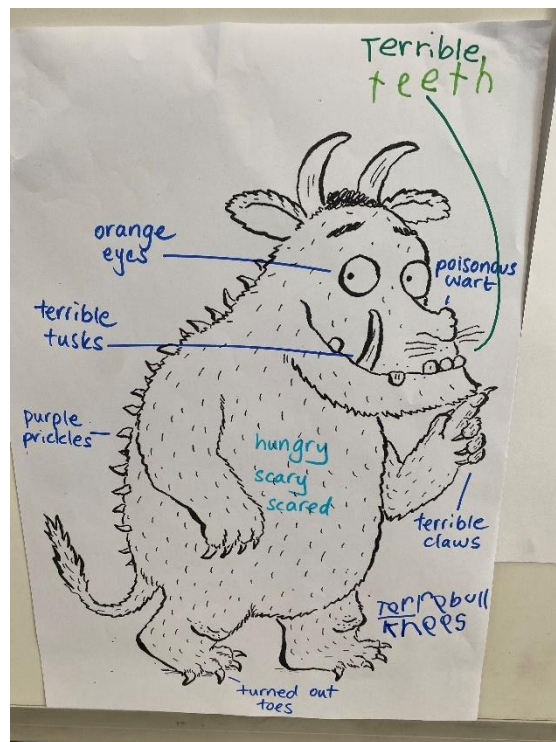 Terrible
teeth
orange
eyes
poisonous
wart
terrible
tusks
purple
prickles
hungry
scary
scared
terrible
claws
Terrebull
knees
turned out
toes